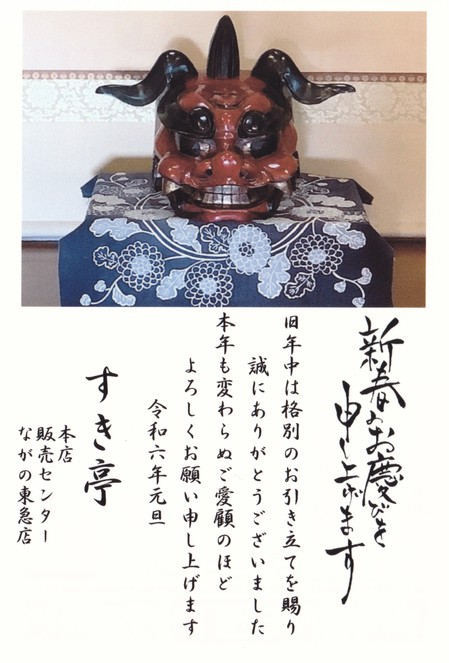 新春のお慶びを
申し上げます
旧年中は格別のお引き立てを賜り
誠にありがとうございました
本年も変わらぬご愛顧のほど
よろしくお願い申し上げます
令和六年元旦
すき亭
本店
販売センター
ながの東急店